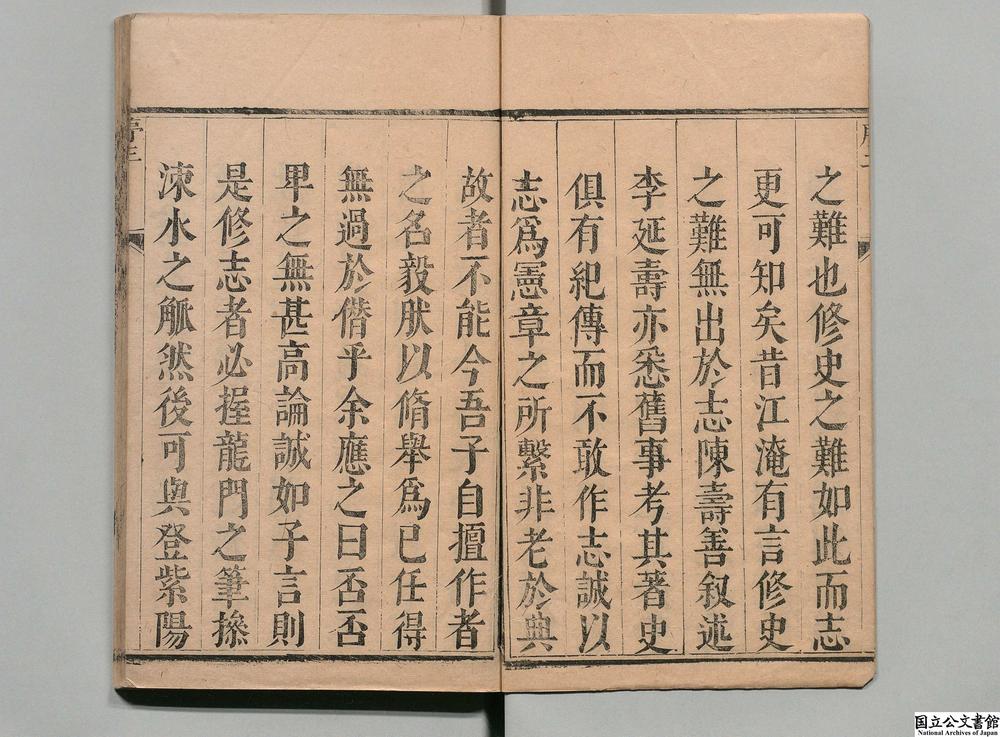 之難也修史之難如此而志
更可知矣昔江淹有言修史
之難無出於志陳壽善叙述
李延壽亦悉舊事考其著史
俱有紀傳而不敢作志誠以
志爲憲章之所繫非老於典
故者不能今吾子自擅作者
之名毅肰以脩舉爲已任得
無過於僭乎余應之曰否否
卑之無甚高論誠如子言則
是修志者必握龍門之筆摻
涑水之觚然後可與登紫陽
序三
国立公文書館
National Archives of Japan